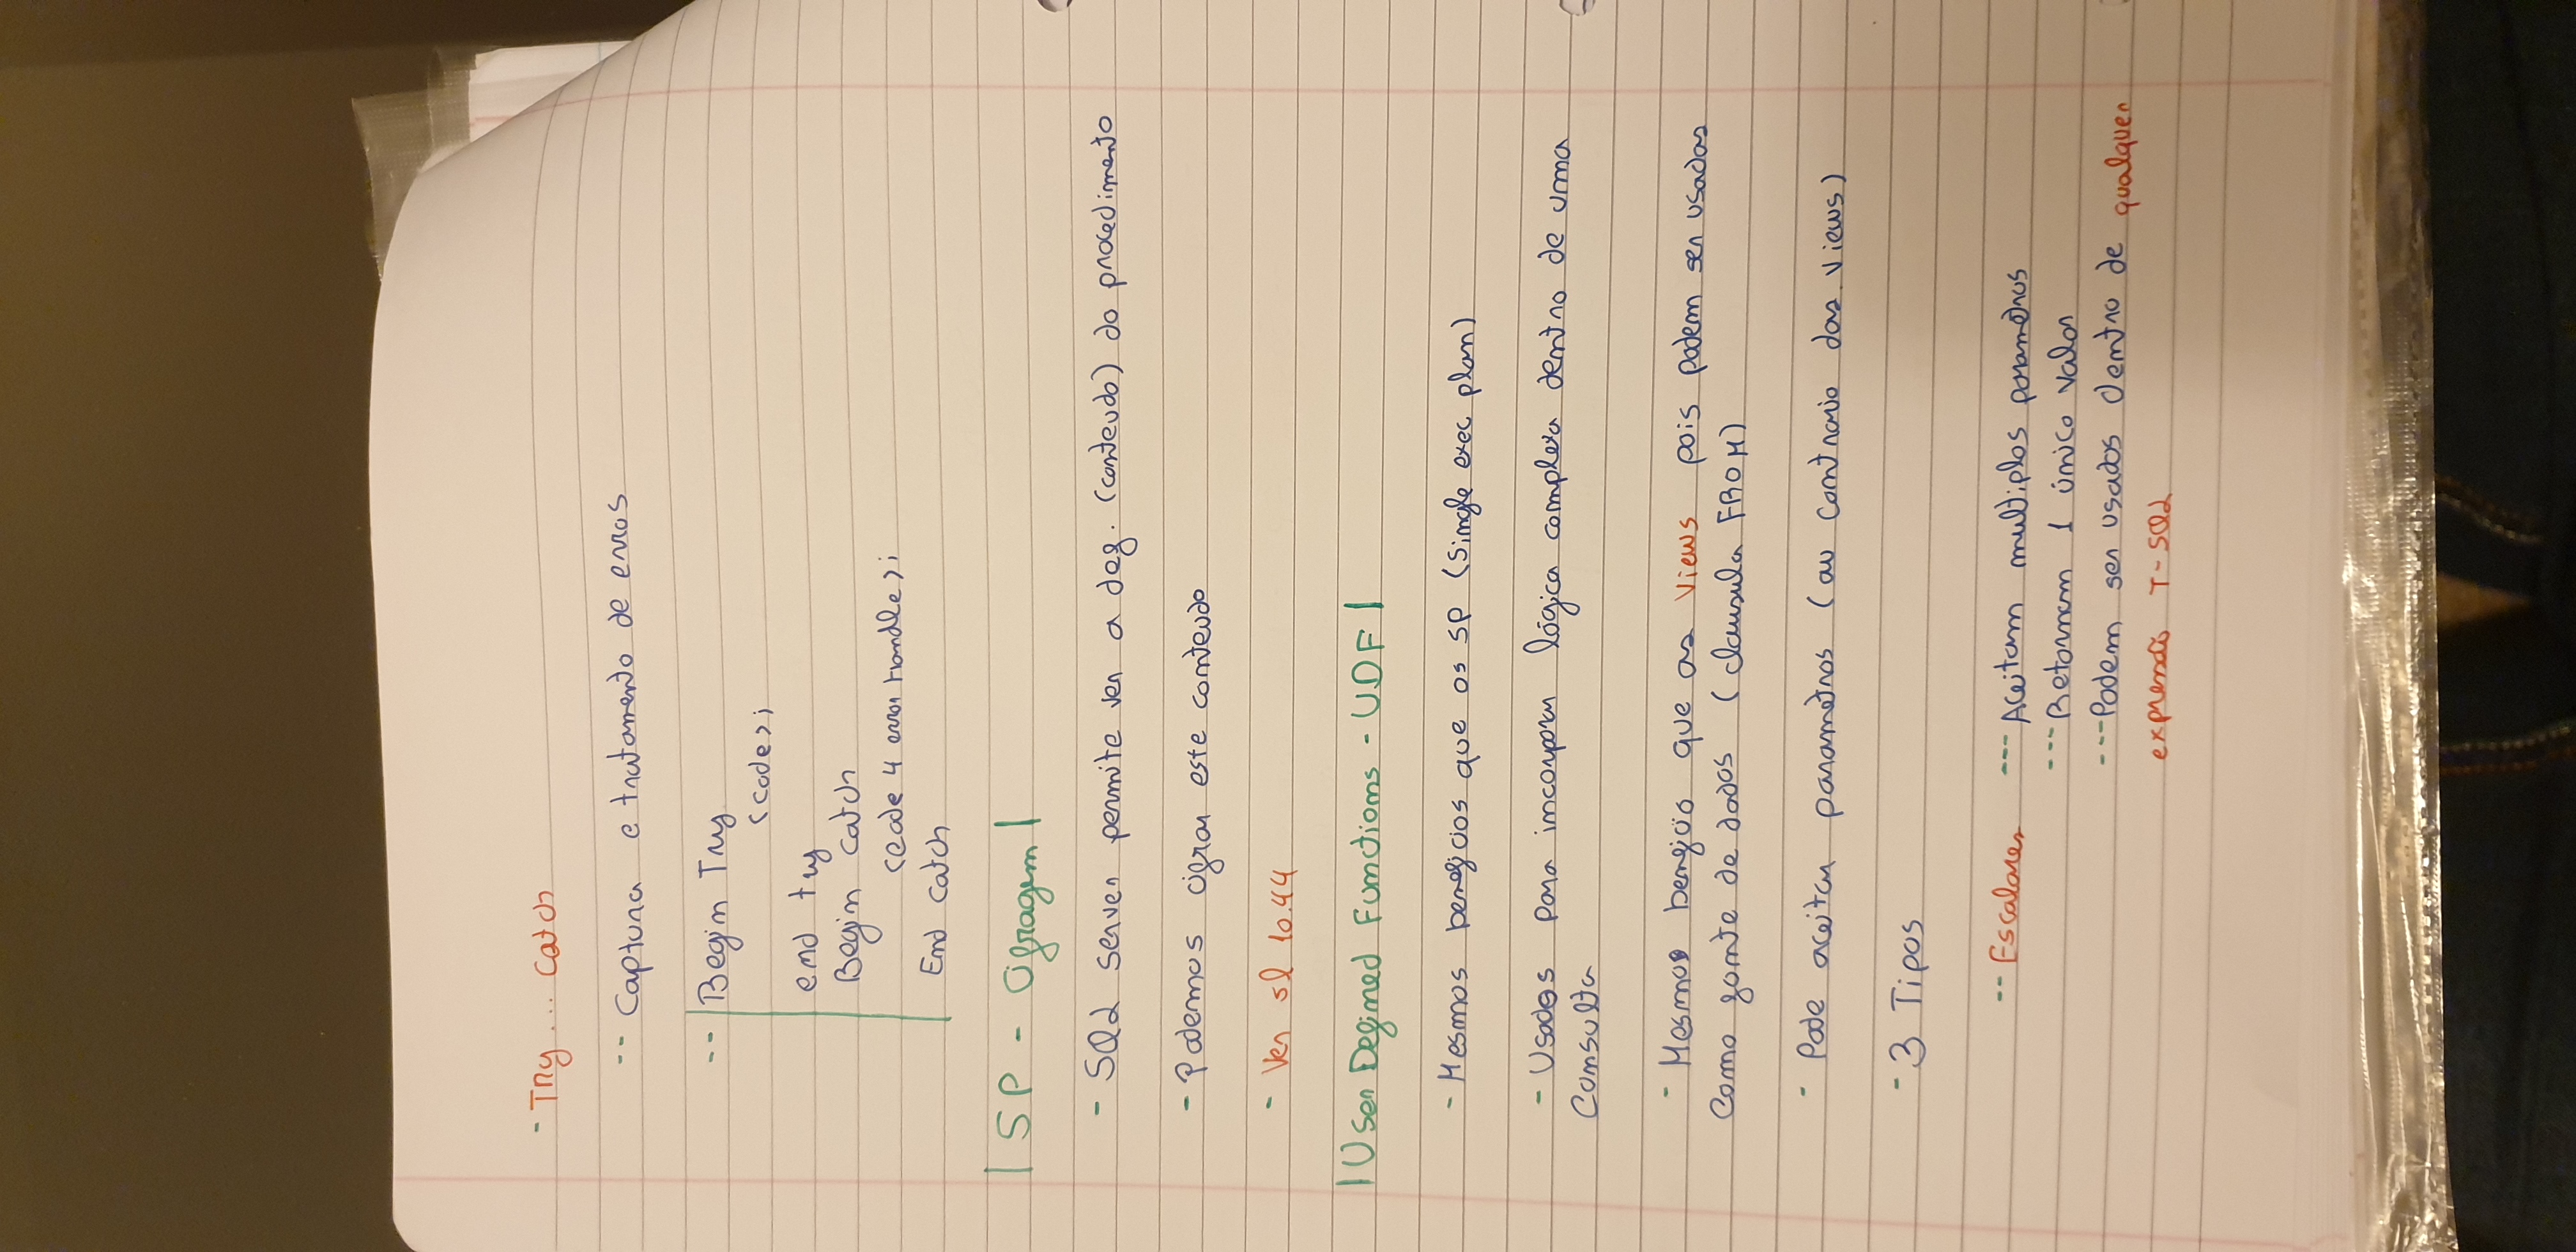 - Try ... Catch
-- Captura e tratamento de erros
-- Begin Try
<code>;
end try
Begin catch
<code 4 error Handle>;
End catch
| SP - Cifragem |
- SQL server permite ver a def. (conteudo) do procedimento
- Podemos cifrar este conteudo
- Ver sl 10.44
| User Defined Functions - UDF |
- Mesmos beneficios que os SP (single exec plan)
- Usados para incorporar lógica complexa dentro de uma
Consulta
- Mesmos beneficio que as views pois podem ser usadas
Como fonte de dados (clausula FROM)
- Pode aceitar parametros (ao contrario das views)
- 3 Tipos
-- Escalares --- Aceitam multiplos parametros
--- Retornam 1 único valor
--- Podem ser usados dentro de qualquer
expressão T-SQL